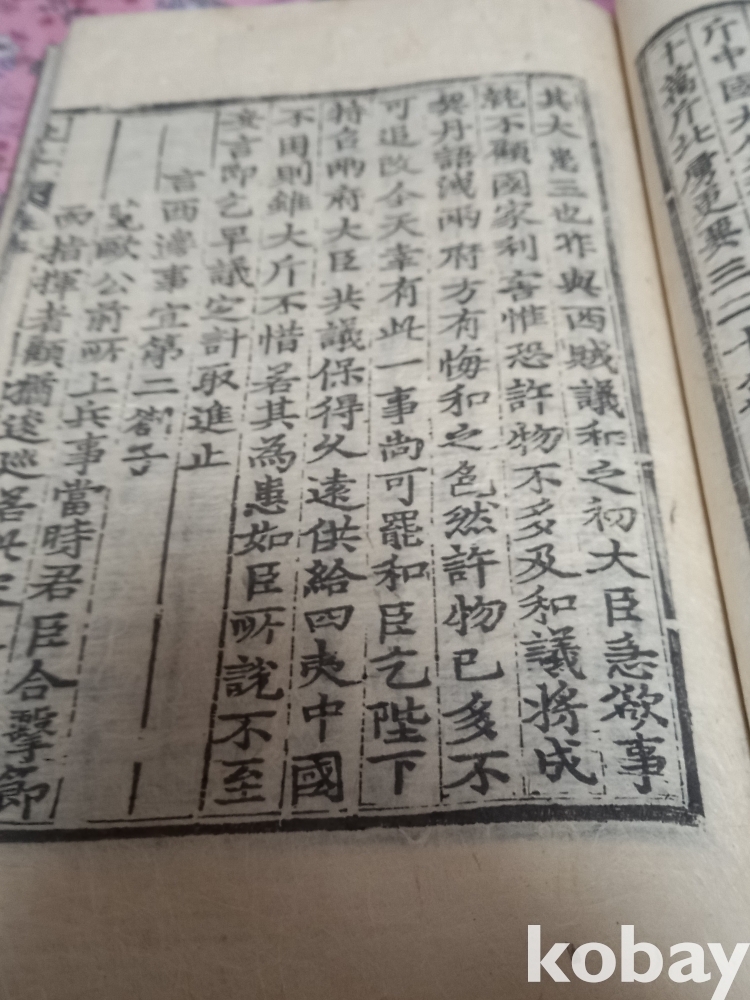 斤中國大
十萬斤北虜更要三二十
其大患三也昨與西賊議和之初大臣急欲事
銳不顧國家利害惟恐許物不多及和議將成
契丹語泄兩府方有悔和之色然許物已多不
可追改今天幸有此一事尚可罷和臣乞陛下
特召兩府大臣共議保得久遠供給四夷中國
不困則雖大斤不惜若其為患如臣所說不至
妄言即乞早議定計取進止
言西邊事宜第二劄子
覽歐公前所上兵事當時君臣合擊節
而指揮者顧猶
kobay